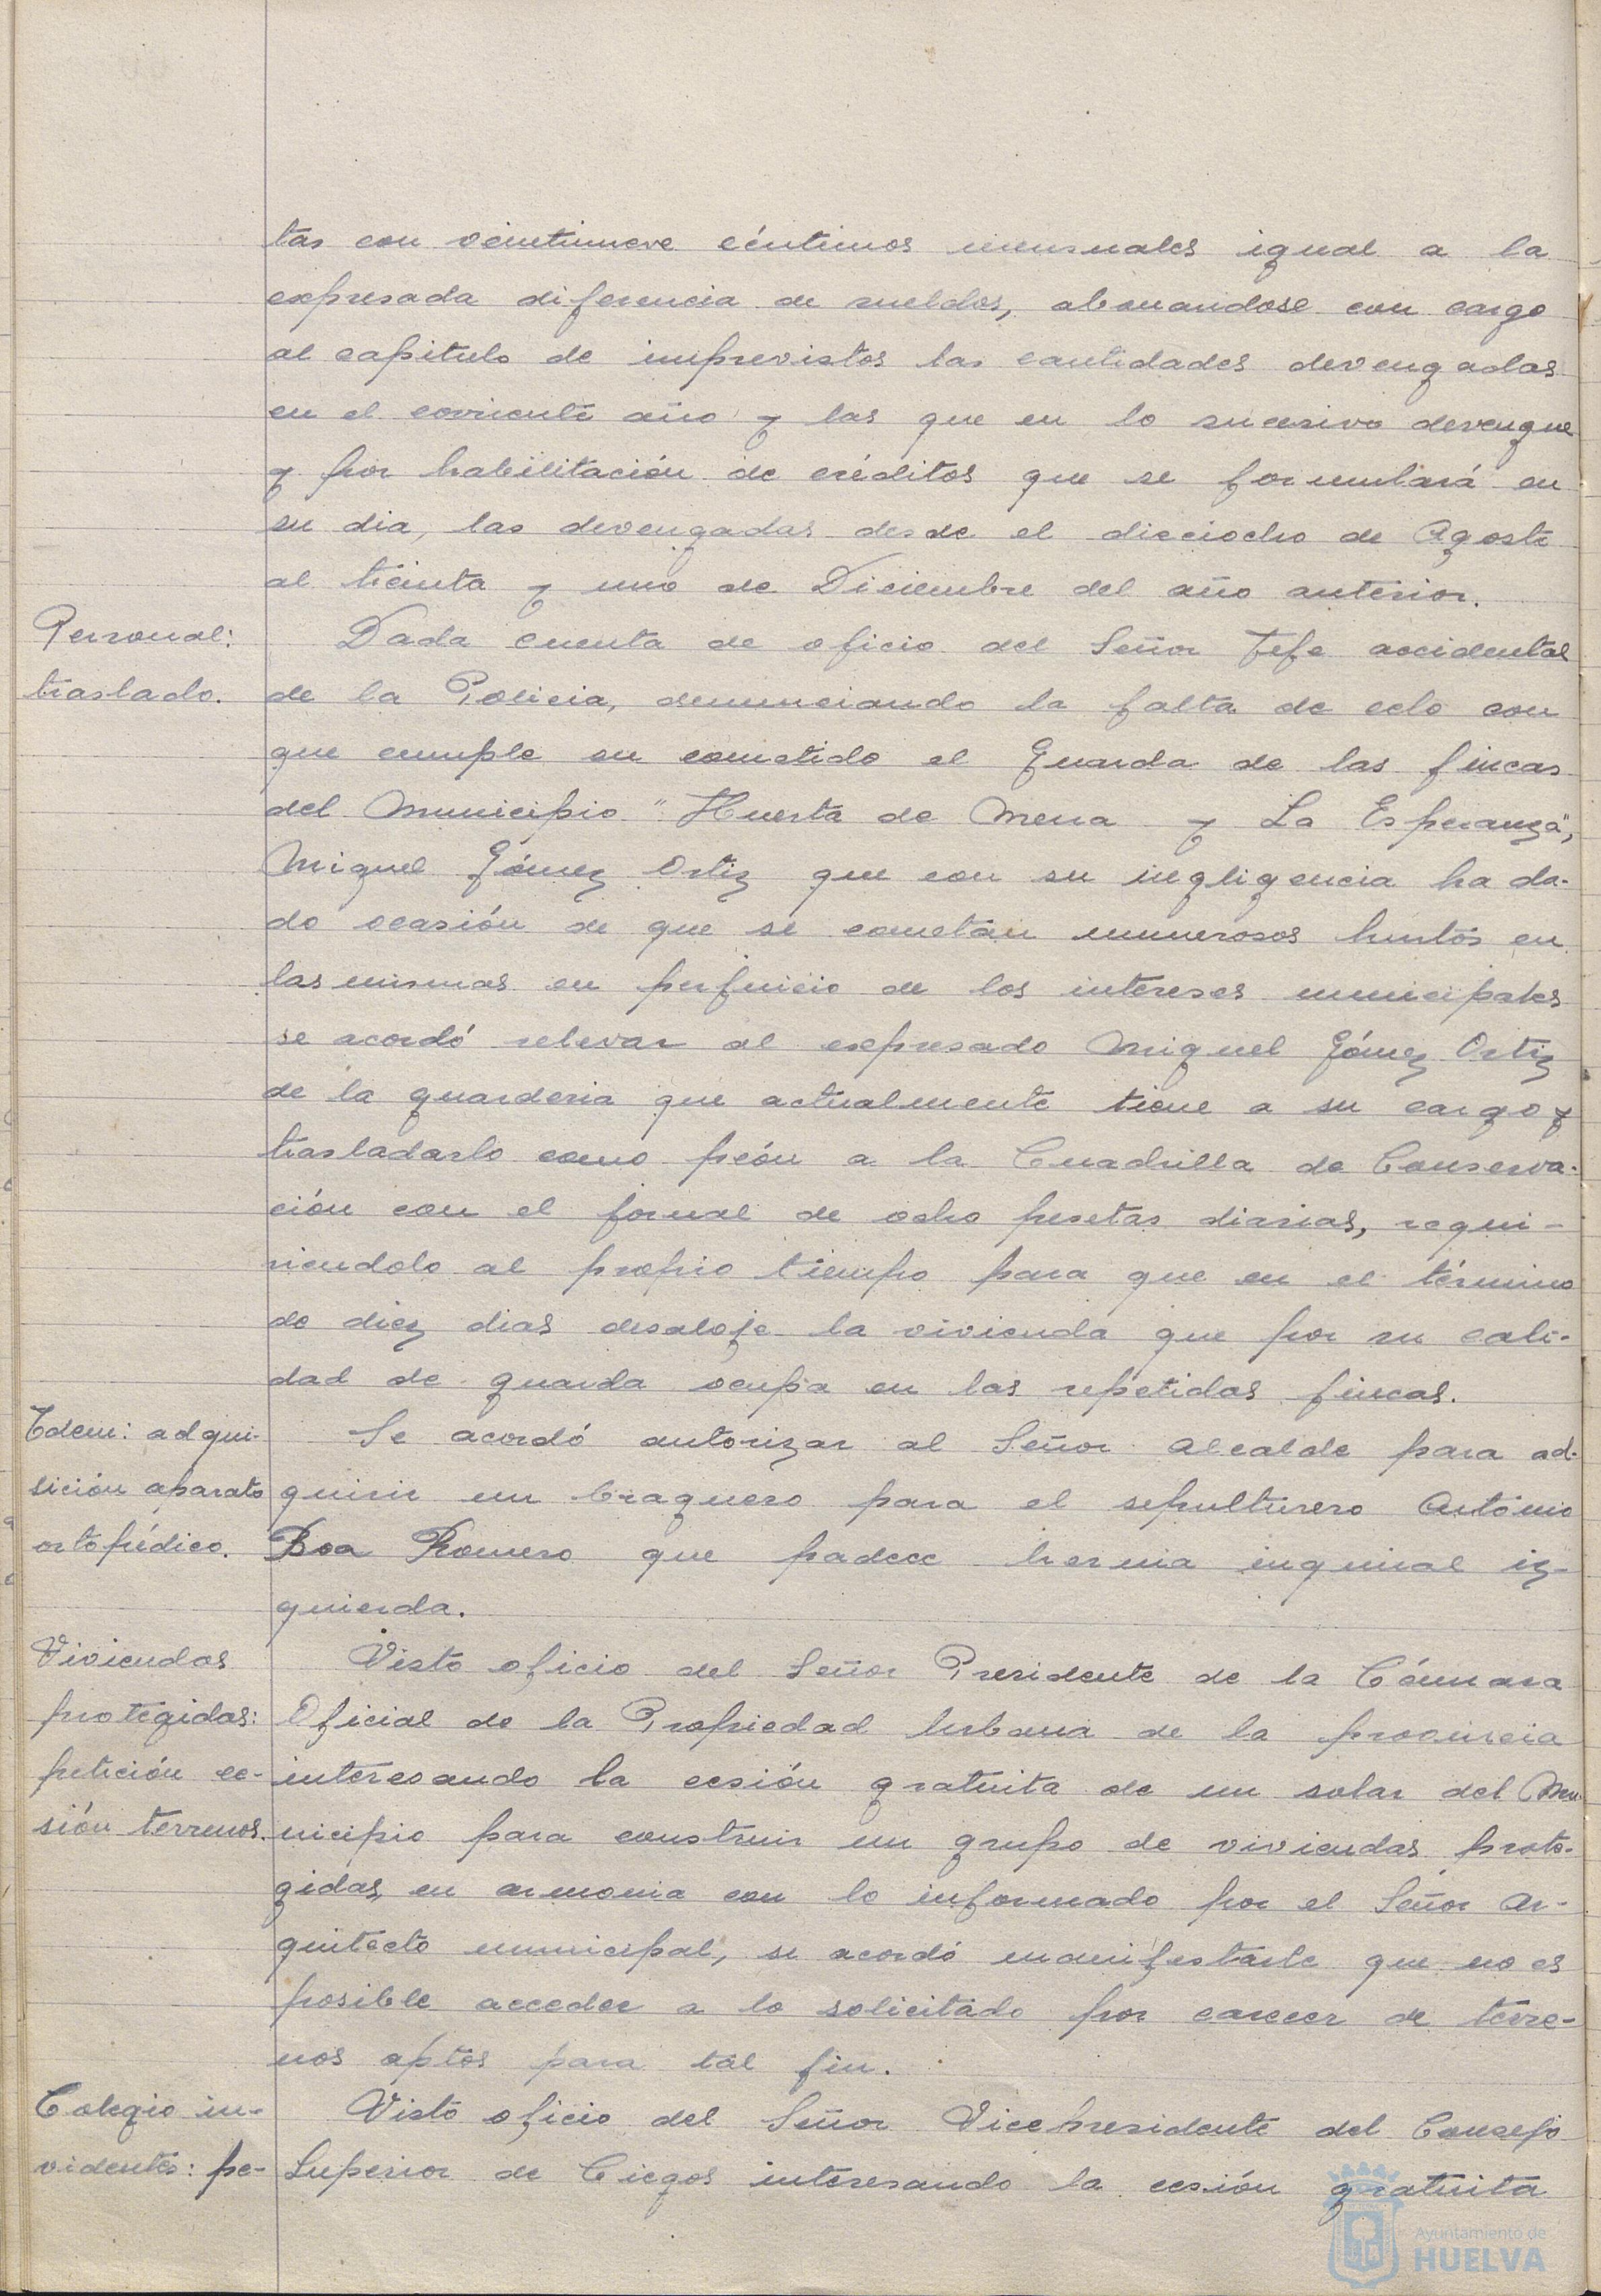 tas con veintinueve céntimos mensuales igual a la
expresada diferencia de sueldos, abonandose con cargo
al capitulo de imprevistos las cantidades devengadas
en el corriente año y las que en lo sucesivo devengue
y por habilitación de créditos que se formulará en
su dia, las devengadas desde el dieciocho de Agosto
al treinta y uno de Diciembre del año anterior.
Personal:
traslado.
Dada cuenta de oficio del Señor Jefe accidental
de la Policia, denunciando la falta de celo con
que cumple su cometido el Guarda de las fincas
del Municipio "Huerta de Mena y La Esperanza",
Miguel Gómez Ortiz que con su ingligencia ha da-
do ocasión de que se cometan numerosos hurtos en
las mismas en perjuicio de los intereses municipales
se acordó relevar al expresado Miguel Gómez Ortiz
de la guarderia que actualmente tiene a su cargo y
trasladarlo como peón a la Cuadrilla de Conserva-
ción con el jornal de ocho pesetas diarias, requi-
riendolo al propio tiempo para que en el término
de diez dias desaloje la vivienda que por su cali-
dad de guarda ocupa en las repetidas fincas.
Idem: adqui-
sición aparato
ortopédico.
Se acordó autorizar al Señor Alcalde para ad-
quirir un braguero para el sepulturero Antonio
Boa Romero que padece hernia inguinal iz-
quierda.
Viviendas
protegidas:
petición ce-
sión terrenos.
Visto oficio del Señor Presidente de la Cámara
Oficial de la Propiedad Urbana de la provincia
interesando la cesión gratuita de un solar del Mu-
nicipio para construir un grupo de viviendas prote-
gidas, en armonia con lo informado por el Señor Ar-
quitecto municipal, se acordó manifestarle que no es
posible acceder a lo solicitado por carecer de terre-
nos aptos para tal fin.
Colegio in-
videntes: pe-
Visto oficio del Señor Vicepresidente del Consejo
Superior de Ciegos interesando la cesión gratuita
Ayuntamiento de
HUELVA